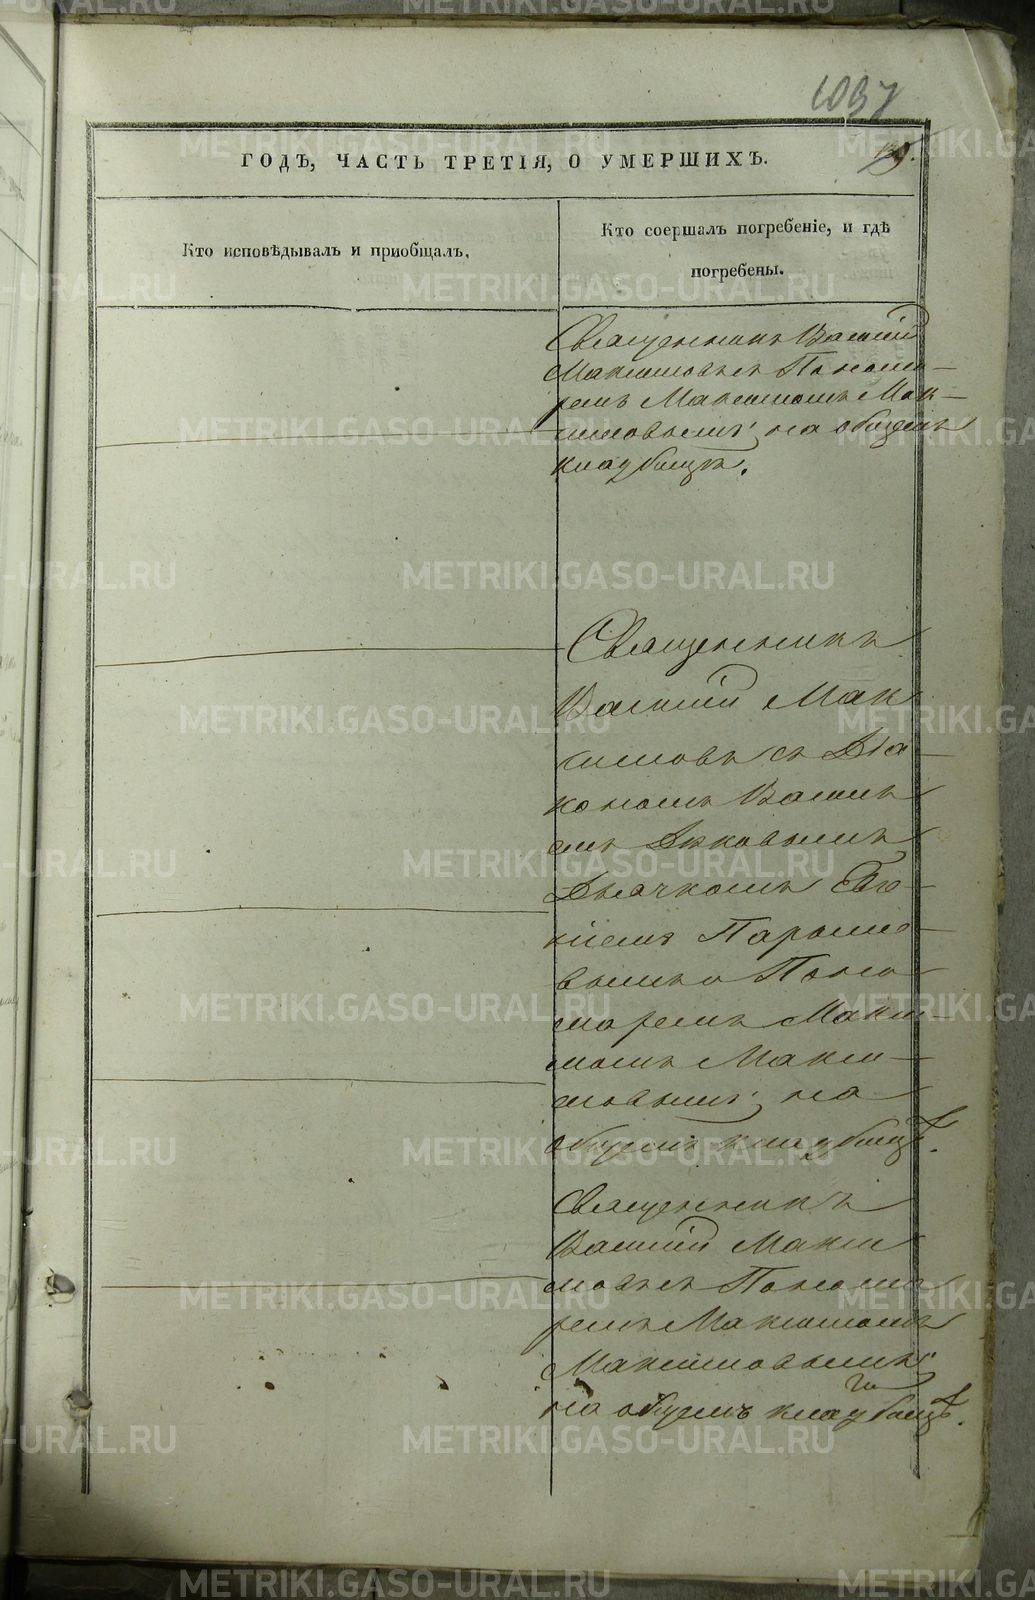 1037
ГОДЪ, ЧАСТЬ ТРЕТІЯ, О УМЕРШИХЪ.
Кто исповѣдывалъ и пріобщалъ.
Кто соершалъ погребеніе, и гдѣ
погребены.
Священникъ Василій
Максимовъ съ Понома-
ремъ Максимомъ Мак-
симовымъ; на общемъ
кладбищѣ.
Священникъ
Василій Мак
симовъ съ Діа-
кономъ Василь
емъ Диковымъ
Дьячкомъ
Пароме-
вымъ и Поно
маремъ Макси-
момъ Макси-
мовымъ; на
общемъ кладбищѣ.
Священникъ
Василій Макси
мовъ съ Понома
ремъ Максимомъ
Максимовымъ;
на общемъ кладбищѣ.
METRIKI.GASO-URAL.RU